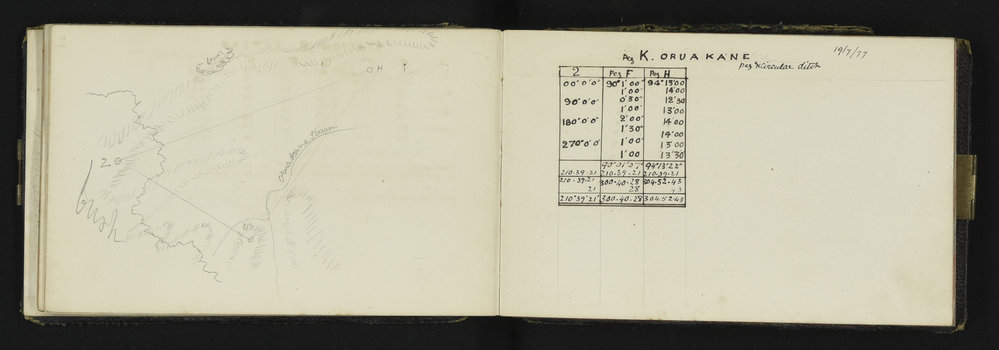 OH
20
bush
Oruakane Stream
19/7/77
Peg K. ORUAKANE
peg circular ditch
2 Peg F Peg H
00°0'0" 90°1'00" 94°13'00
1'00" 14'00
90°0'0" 0'30" 12'30
1'00" 13'00
180°0'0" 2'00" 14'00
1'30" 14'00
270°0'0" 1'00" 13'00
1'00 13'30
90°01'07" 94°13'22"
210.39.21 210.39.21 210.39.21
210.39.21 300.40.28 304.52.43
21 28 43
210°39'21" 300.40.28 304.52.43